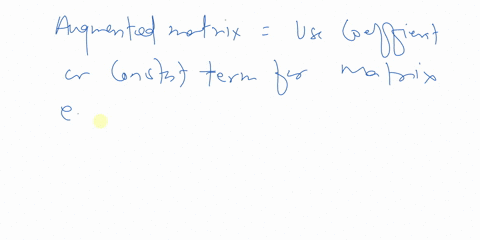 Augmented matrix = Use Coefficient
or Constat term for matrix
e.